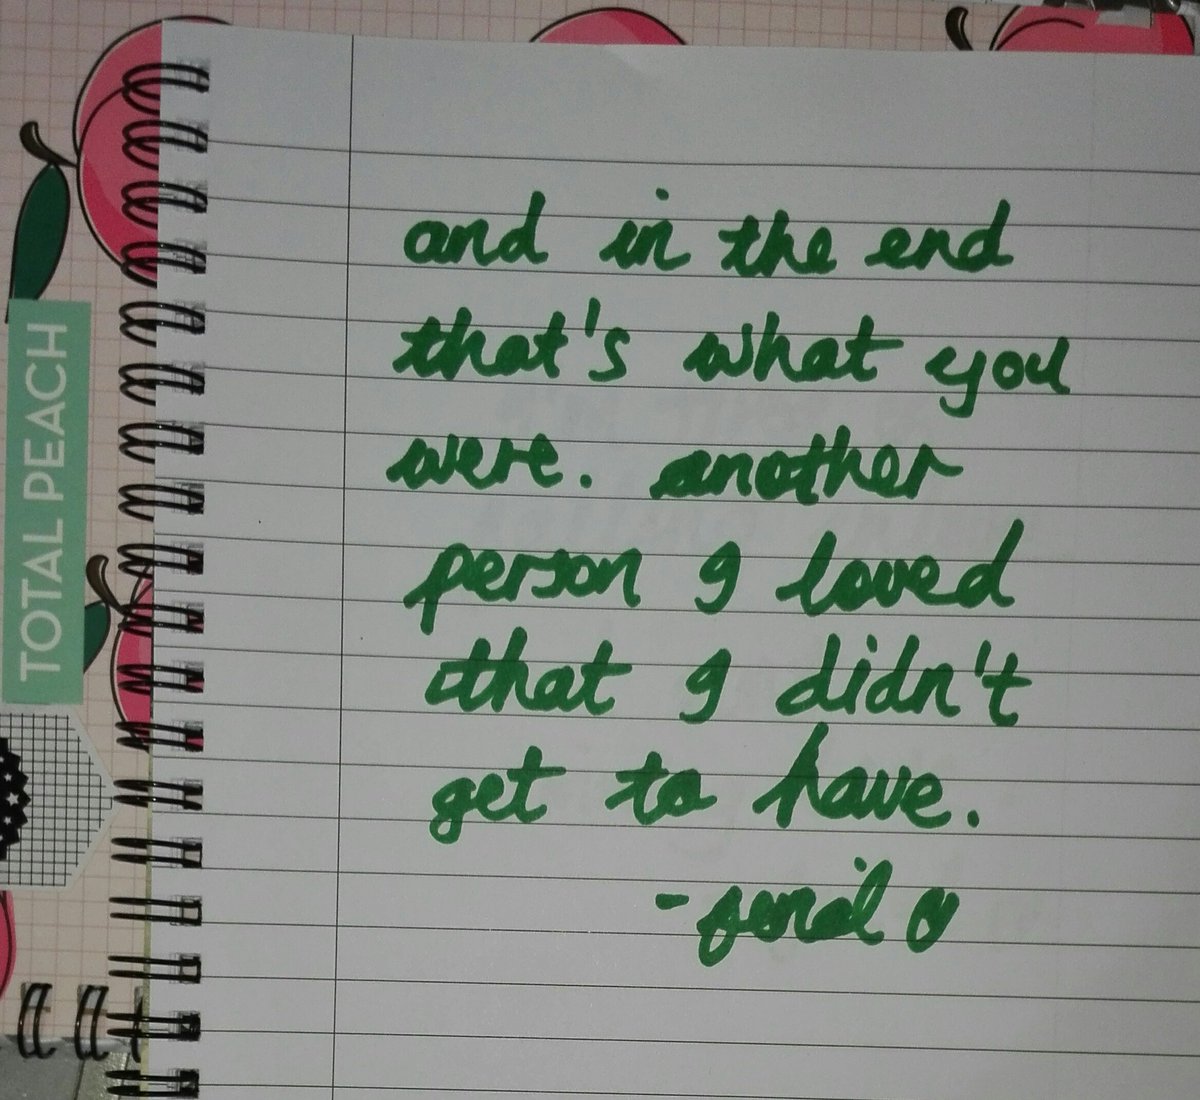 TOTAL PEACH
and in the end
that's what you
were. another
person I loved
that I didn't
get to have.